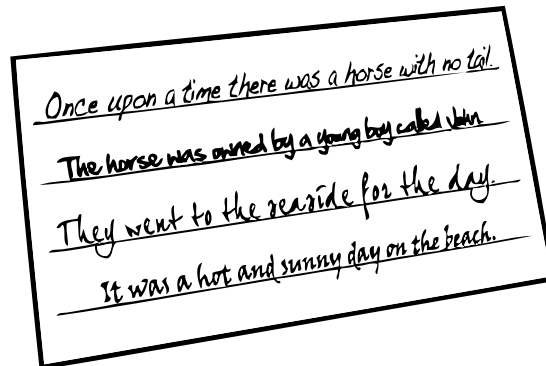 Once upon a time there was a horse with no tail.
The horse was owned by a young boy called John
They went to the seaside for the day.
It was a hot and sunny day on the beach.